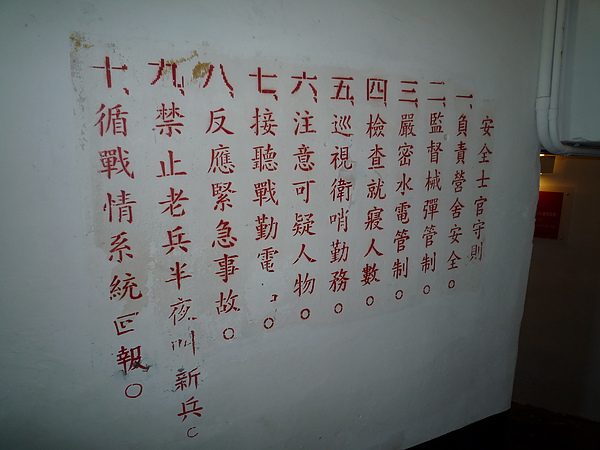 安全士官守則
一、負責營舍安全。
二、監督械彈管制。
三、嚴密水電管制。
四、檢查就寢人數。
五、巡視衛哨勤務。
六、注意可疑人物。
七、接聽戰勤電。
八、反應緊急事故。
九、禁止老兵半夜叫新兵。
十、循戰情系統回報。